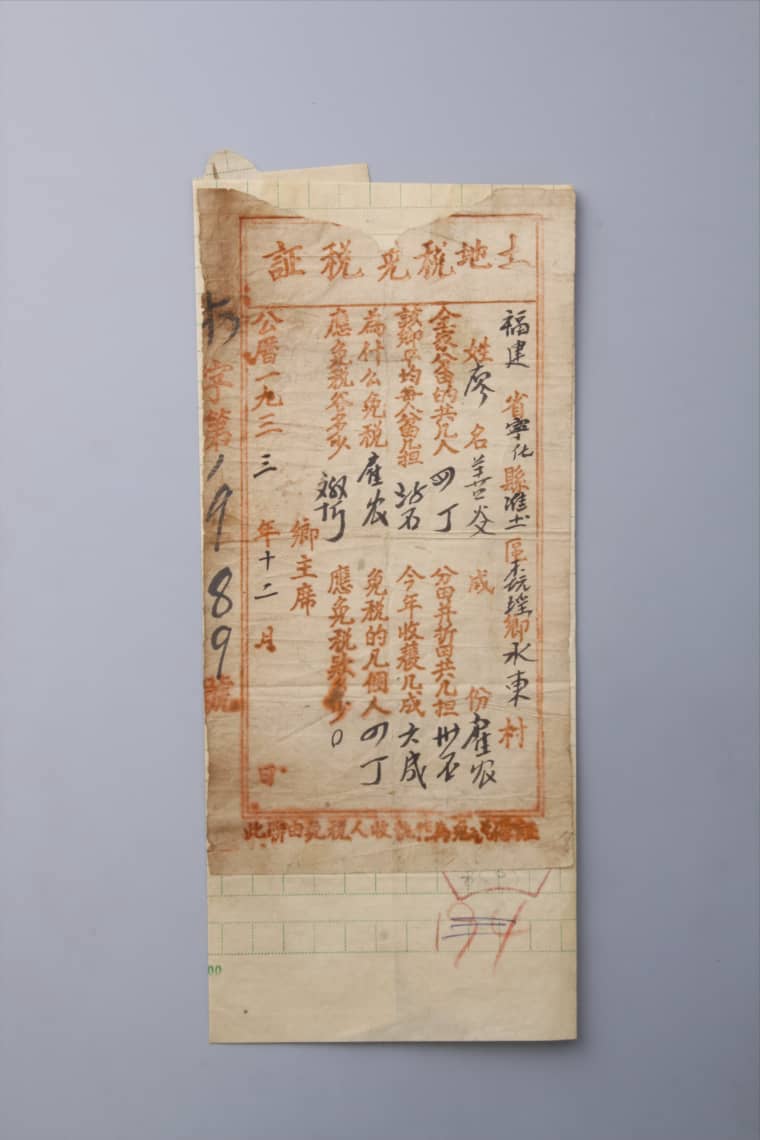 土地稅免稅証
福建省寧化縣淮土區 坑 鄉永東村
姓廖名善 成份雇农
全家分田的共几人四丁 分田并折田共几担卅
該鄉平均每人分田几担 石 今年收穫几成六成
為什么免稅雇农 免稅的几個人四丁
應免稅谷多少 應免稅款多少0
鄉主席
公曆一九三三年十二月 日
字第1989號
此聯由免稅人收執作為免
194
00